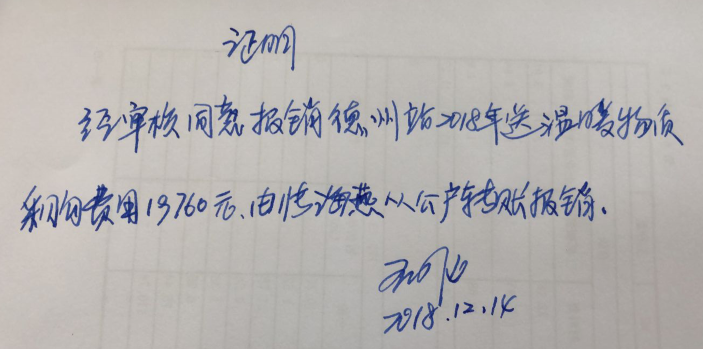 证明
经审核同意报销德州站2018年送温暖物质
采购费用13760元,由海燕从公户转账报销.
2018.12.14